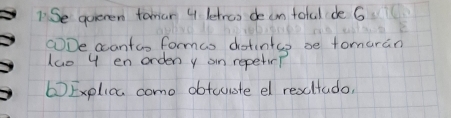 1. Se quieren tomar 4 letras de un total de 6
a) De cuantas formas distintas se tomarán
las 4 en orden y sin repetir?
b) Explica como obtuviste el resultado.